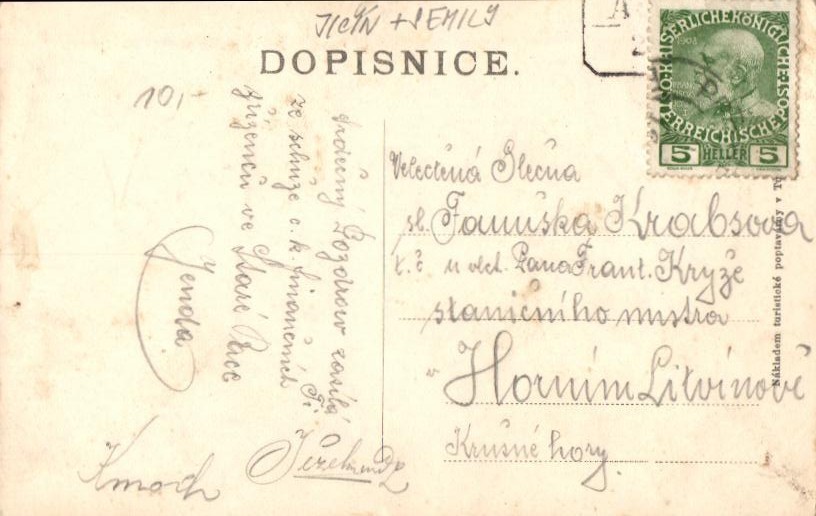 JICÍN + SEMILY
DOPISNICE.
10,-
Srdečný Pozdrav zasílá Ti
ze schůze c. k. finančních
zřízenců ve Staré Pace
Jenda
Kmoch
Velectěná Slečna
sl. Fanuška Krabsova
t. č. u vlct. Pana Frant. Kryže
staničního mistra
v Horním Litvínově
Krušné hory
KAISERLICHEKÖNIGLICHE
ÖSTERREICHISCHE POST
1908
5 HELLER 5
Nákladem turistické poptavárny v Tu